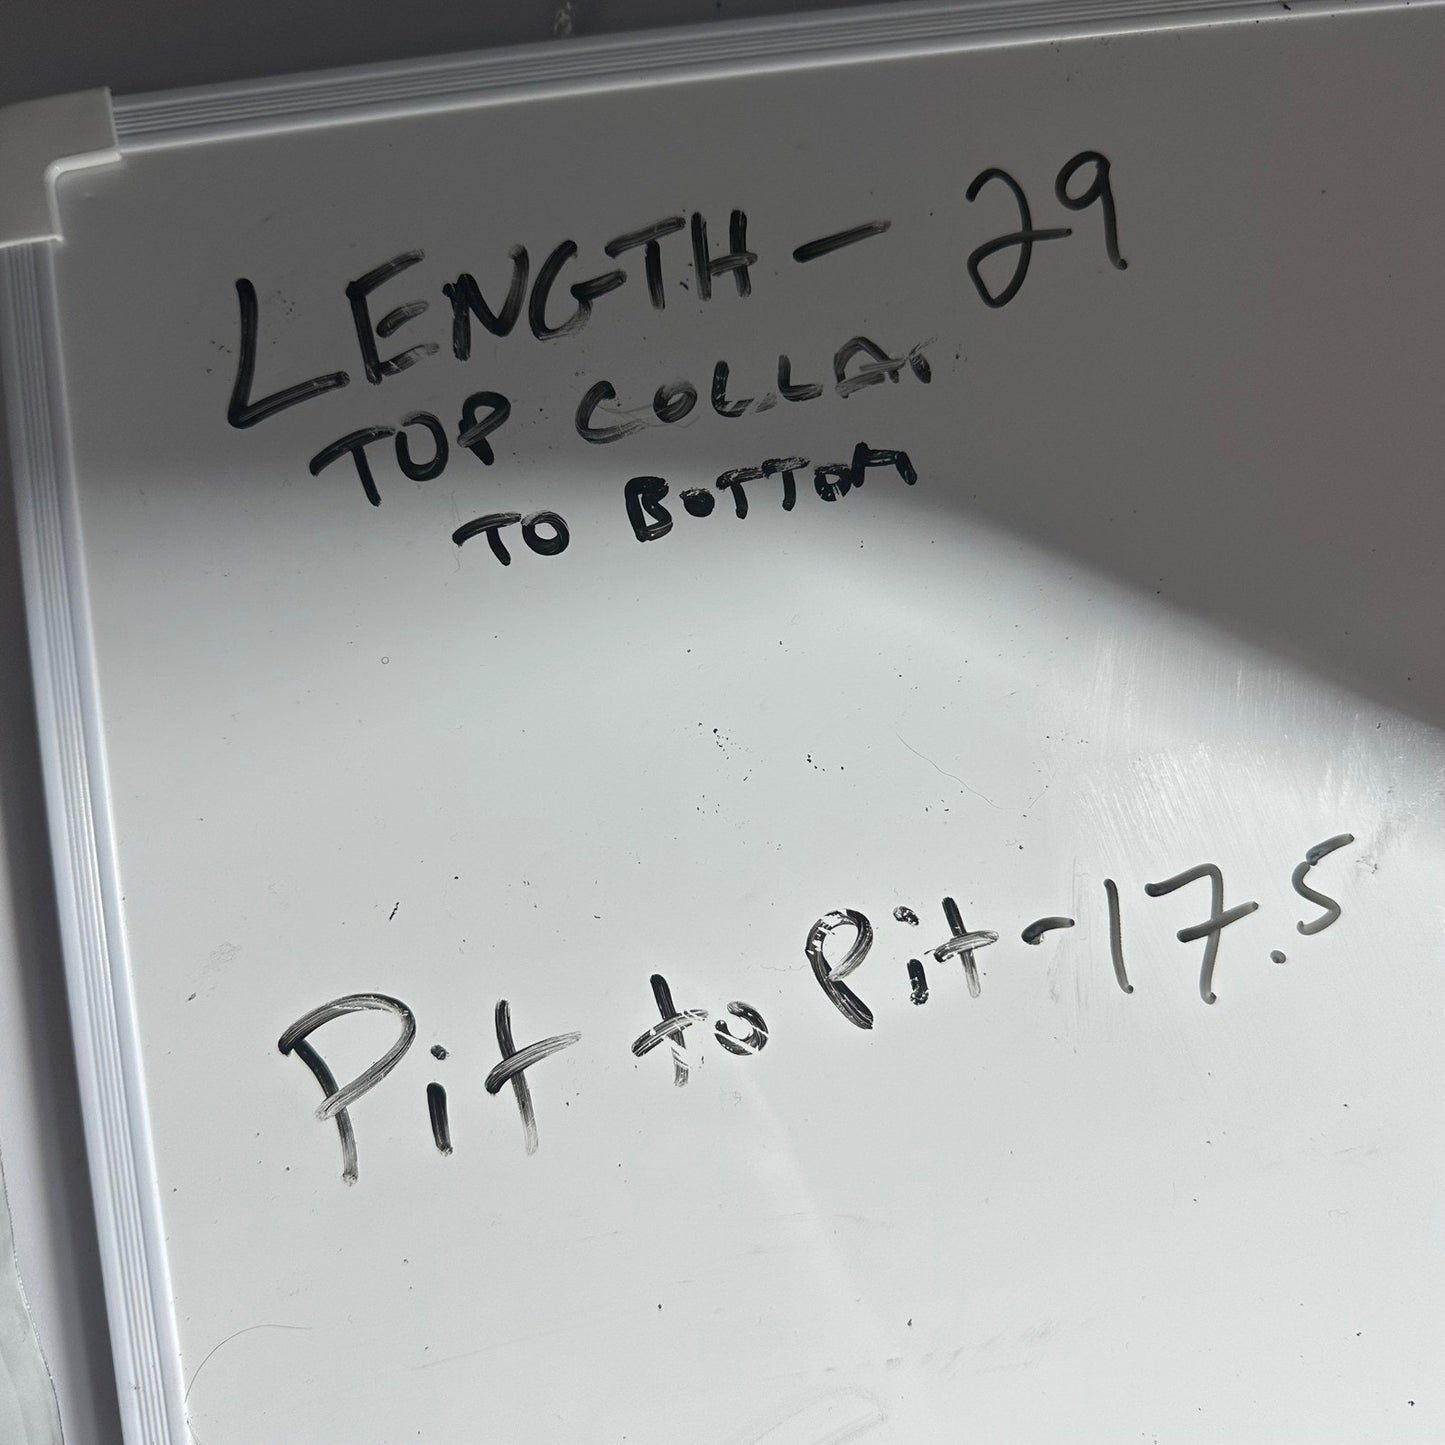 LENGTH - 29
TOP COLLAr
TO BOTTOM
Pit to Pit - 17.5